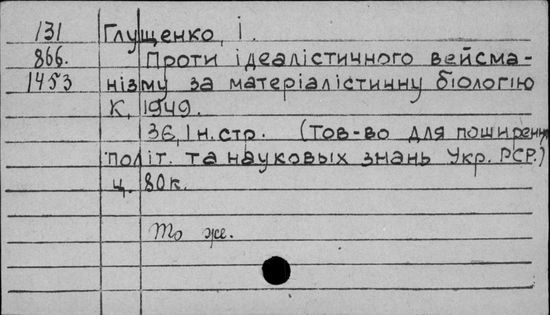 131 Глущенко, І.
866. Проти ідеалістичного вейсма-
1453 нізму за матеріалістичну біологію
К, 1949.
36, 1н. стр. (Тов-во для поширення
політ. та наукових знань Укр. РСР.)
ц. 80к.
То же.